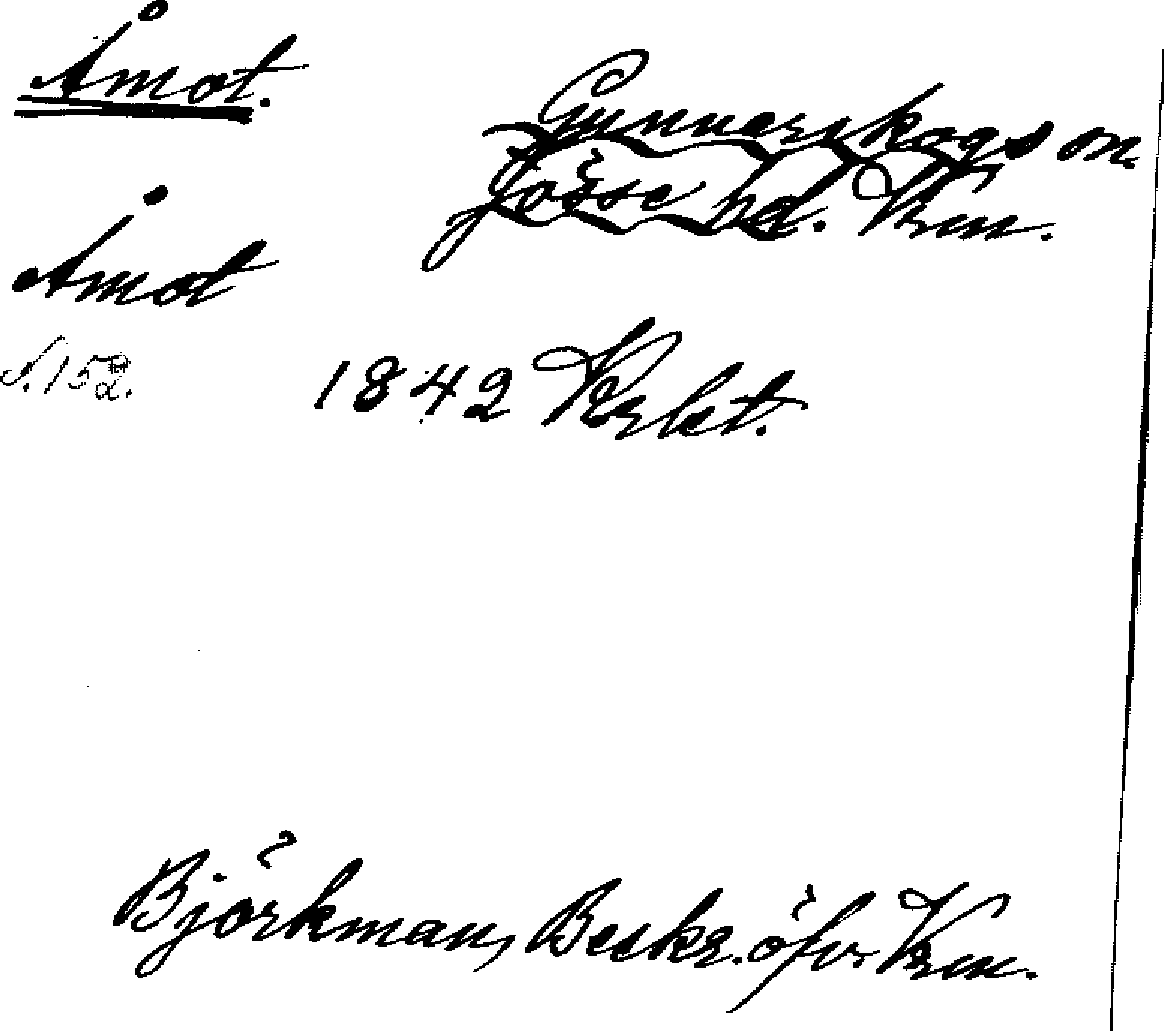 Åmot.
Gunnarskogs sn
Jösse hd. Vrm.
Åmot
S. 152.
1842 Krkt.
Björkman, Beskr. öfv. Vrm.